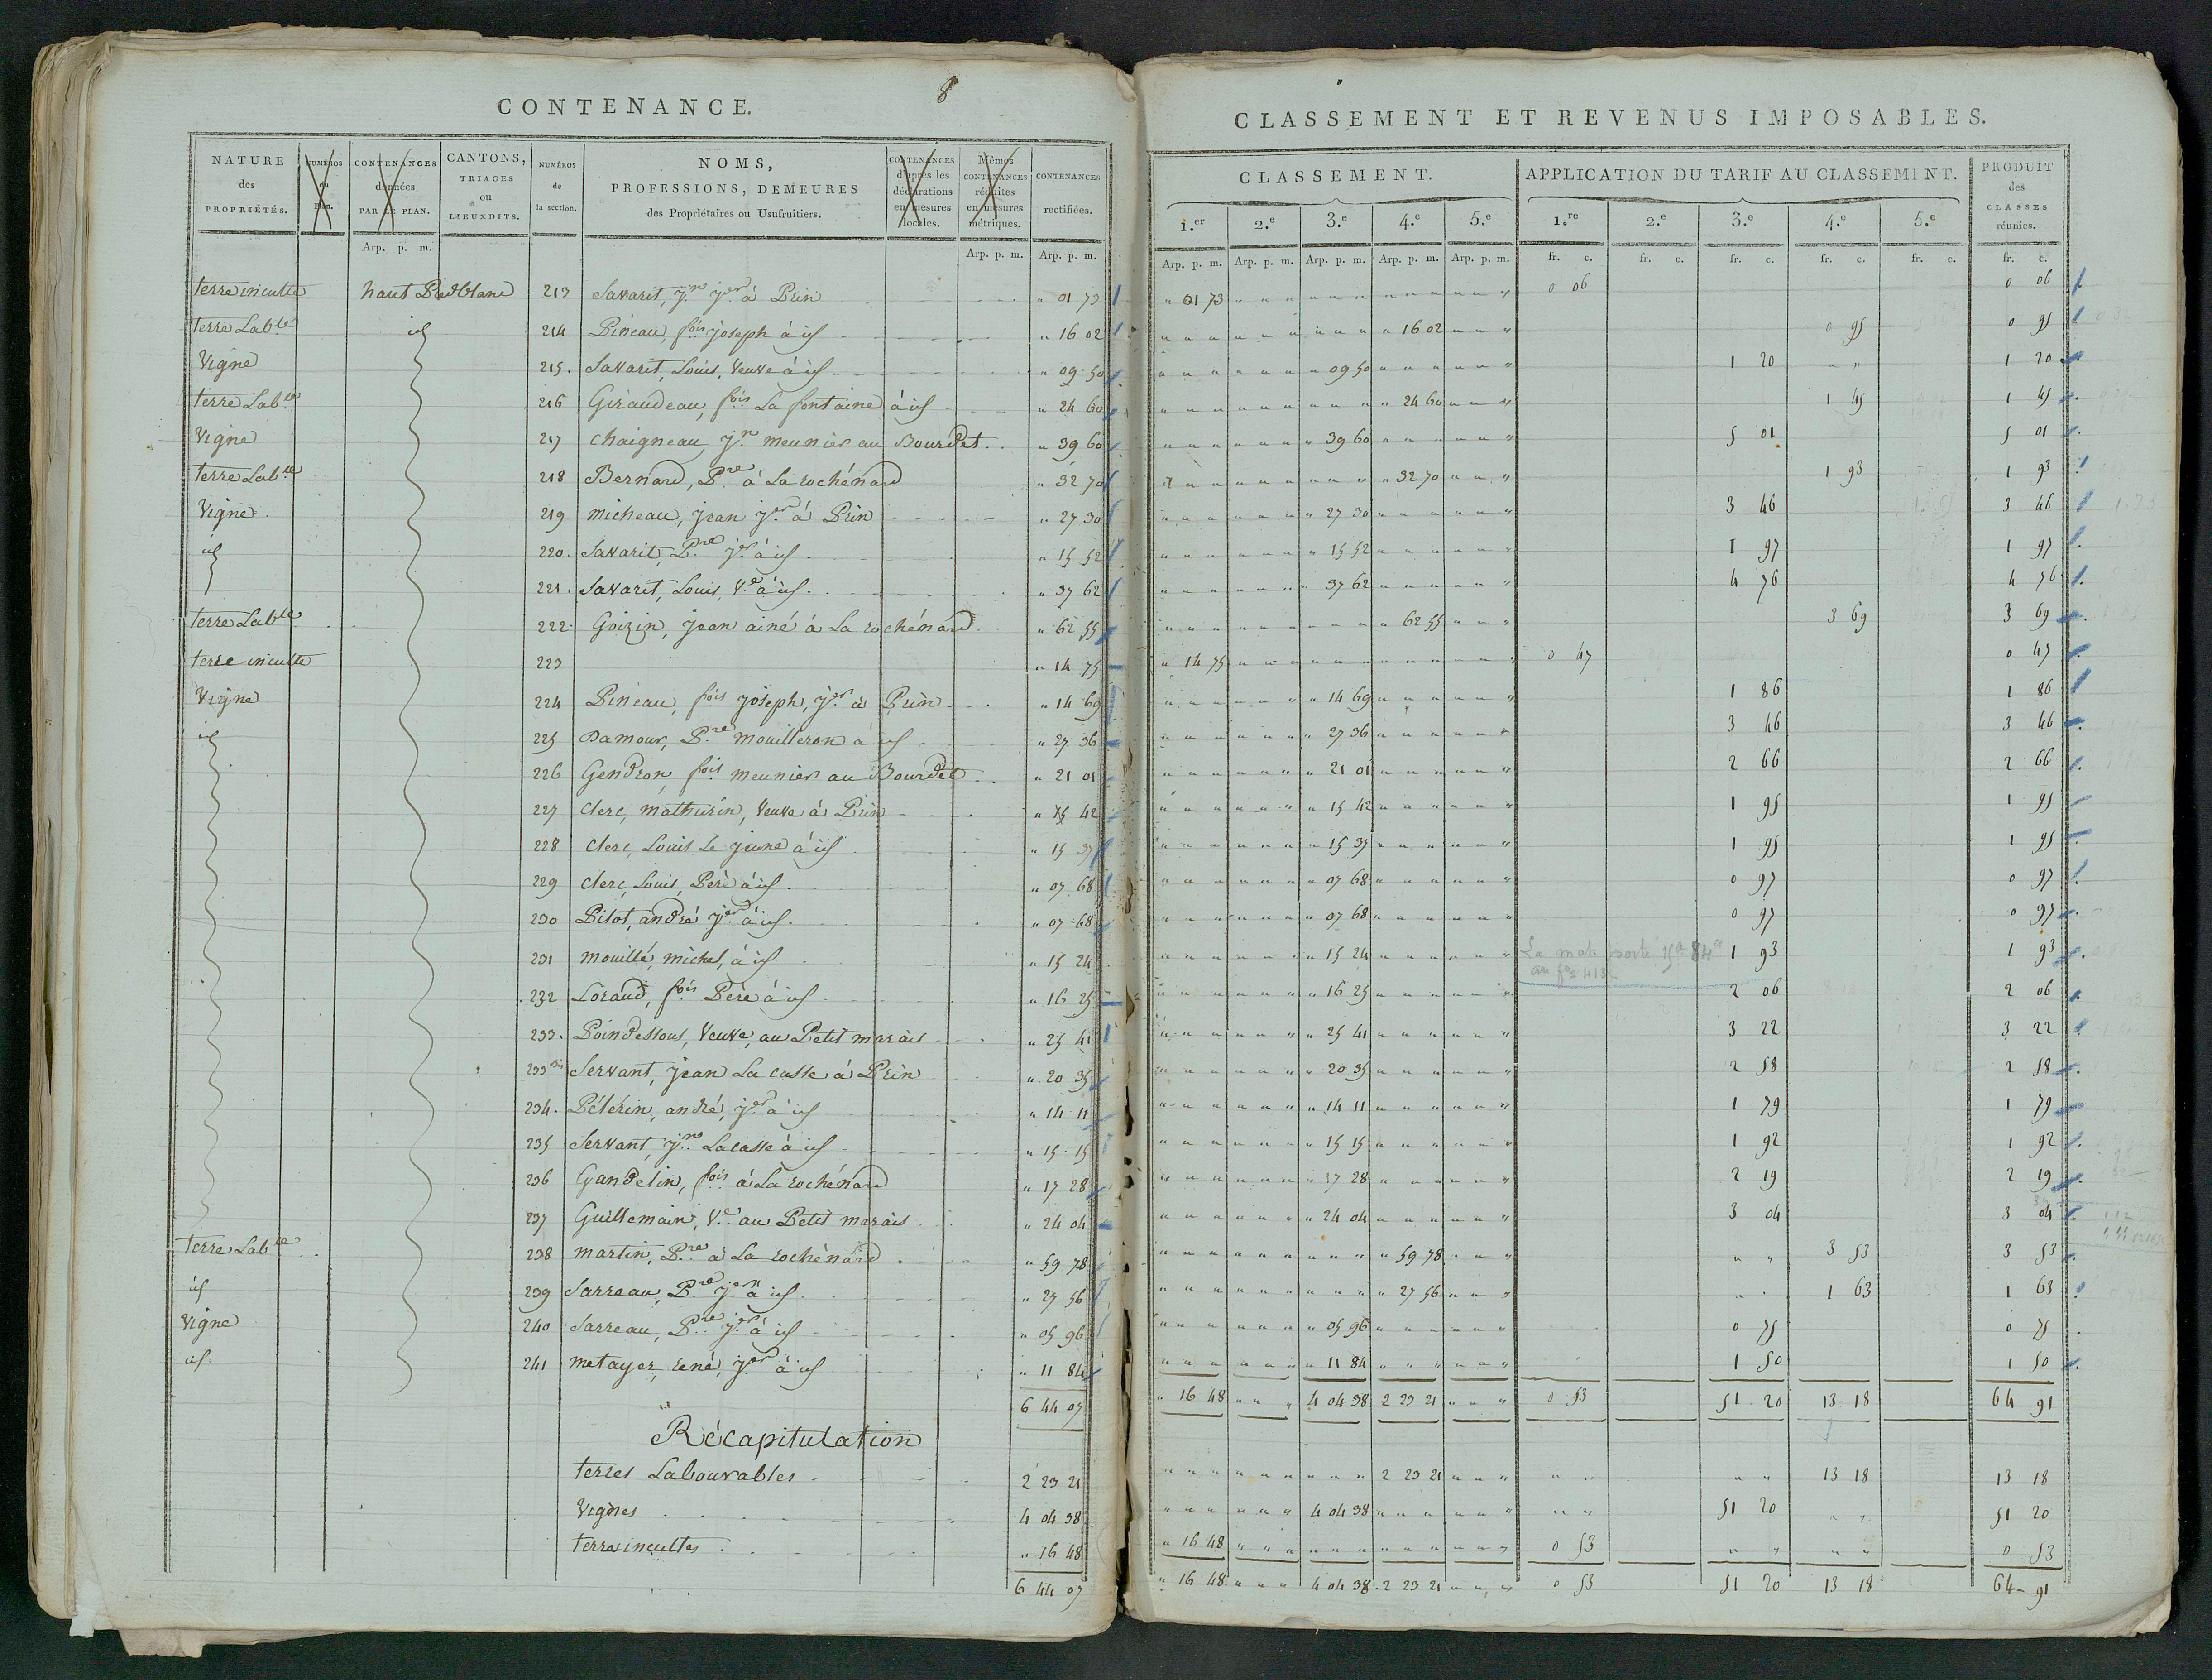 8
CONTENANCE.
NATURE des PROPRIÉTÉS. NUMÉROS du Plan. CONTENANCES données PAR LE PLAN. CANTONS, TRIAGES ou LIEUXDITS. NUMÉROS de la section. NOMS, PROFESSIONS, DEMEURES des Propriétaires ou Usufruitiers. CONTENANCES d'après les déclarations en mesures locales. Mêmes CONTENANCES réduites en mesures métriques. CONTENANCES rectifiées.
Arp. p. m. Arp. p. m. Arp. p. m.
terre inculte haut Piedblanc 213 Savarit, Jn. Jer. à Prin " 01 73
terre Lable id 214 Pineau, fois joseph à id " 16 02
Vigne 215. Savarit, Louis, Veuve à id " 09 50
terre Lable 216 Giraudeau, fois La fontaine à id " 24 60
Vigne 217 Chaigneau, Jn. meunier au Bourdet " 39 60
terre Lable 218 Bernard, Pre. à La rochénard " 32 70
Vigne 219 micheau, jean Jer. à Prin " 27 30
id 220. Savarit, Pre. Jer. à id " 15 52
221. Savarit, Louis, Ve. à id " 37 62
terre Lable 222 Goizin, jean ainé à La rochénard " 62 55
terre inculte 223 " 14 75
Vigne 224 Pineau, fois joseph, Jer. à Prin " 14 69
id 225 Damour, Pre. mouilleron à id " 27 36
226 Gendron, fois meunier au Bourdet " 21 01
227 Clerc, mathurin, Veuve à Prin " 15 42
228 Clerc, Louis Le jeune à id " 15 37
229 Clerc, Louis, Père à id " 07 68
230 Pitot, andré Jer. à id " 07 68
231 mouillé, michel, à id " 15 24
232 Loraud, fois Père à id " 16 25
233. Paindessous, Veuve, au Petit marais " 25 41
233bis Servant, jean La casse à Prin " 20 35
234. Pélérin, andré, Jer. à id " 14 11
235 Servant, Jn. Lacasse à id " 15 15
236 Gandelin, fois à La rochénard " 17 28
237 Guillemain, Ve. au Petit marais " 24 04
terre Lable 238 martin, Pre. à La rochénard " 59 78
id 239 Sarreau, Pre. Jer. à id " 27 56
Vigne 240 Sarreau, Pre. Jer. à id " 05 96
id 241 metayer, rené, Jer. à id " 11 84
6 44 07
Récapitulation
terres Labourables 2 23 21
Vignes 4 04 38
terres incultes " 16 48
6 44 07
CLASSEMENT ET REVENUS IMPOSABLES.
CLASSEMENT. APPLICATION DU TARIF AU CLASSEMENT. PRODUIT des CLASSES réunies.
1.er 2.e 3.e 4.e 5.e 1.re 2.e 3.e 4.e 5.e
Arp. p. m. Arp. p. m. Arp. p. m. Arp. p. m. Arp. p. m. fr. c. fr. c. fr. c. fr. c. fr. c. fr. c.
" 01 73 0 06 0 06
" 16 02 0 95 0 95
" 09 50 1 20 1 20
" 24 60 1 45 1 45
" 39 60 5 01 5 01
" 32 70 1 93 1 93
" 27 30 3 46 3 46
" 15 52 1 97 1 97
" 37 62 4 76 4 76
" 62 55 3 69 3 69
" 14 75 0 47 0 47
" 14 69 1 86 1 86
" 27 36 3 46 3 46
" 21 01 2 66 2 66
" 15 42 1 95 1 95
" 15 37 1 95 1 95
" 07 68 0 97 0 97
" 07 68 0 97 0 97
" 15 24 La mat. porte 15a 84 1 93 1 93
au fo 413
" 16 25 2 06 2 06
" 25 41 3 22 3 22
" 20 35 2 58 2 58
" 14 11 1 79 1 79
" 15 15 1 92 1 92
" 17 28 2 19 2 19
" 24 04 3 04 3 04
" 59 78 3 53 3 53
" 27 56 1 63 1 63
" 05 96 0 75 0 75
" 11 84 1 50 1 50
" 16 48 " " " 4 04 38 2 23 21 " " " 0 53 51 20 13 18 64 91
2 23 21 13 18 13 18
4 04 38 51 20 51 20
" 16 48 0 53 0 53
" 16 48 " " " 4 04 38 2 23 21 " " " 0 53 51 20 13 18 64 91